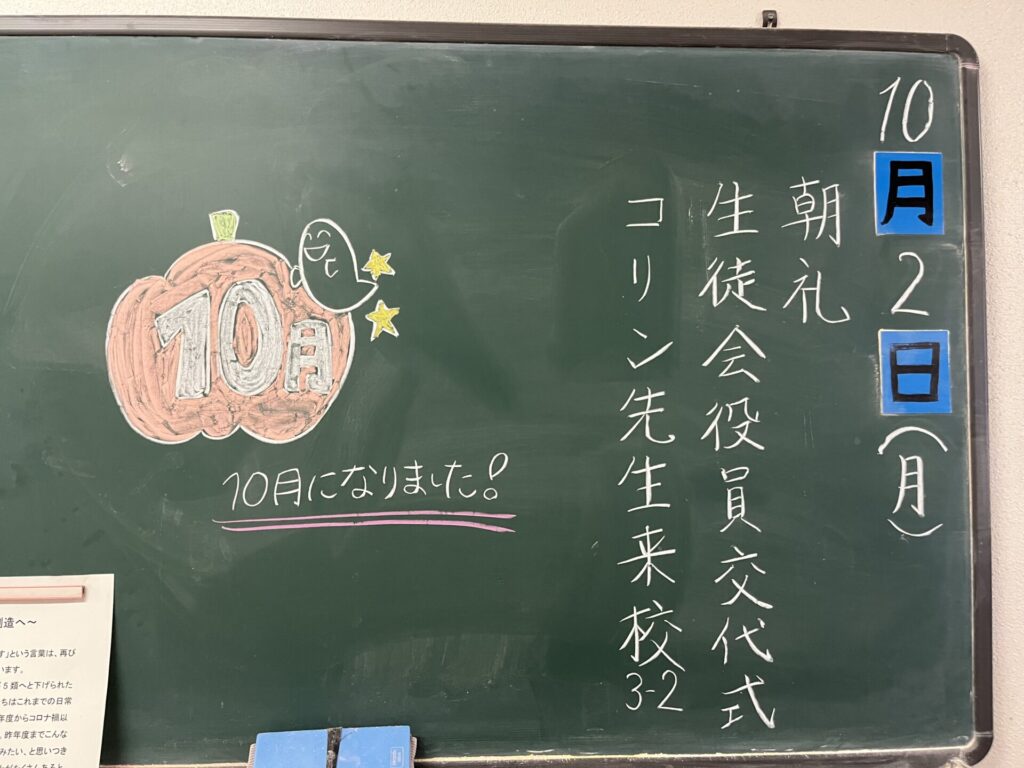 10月2日(月)
朝礼
生徒会役員交代式
コリン先生来校3-2
10月
10月になりました!
創造へ〜
す」という言葉は、再び
います。
5類へと下げられた
ちはこれまでの日常
年度からコロナ禍以
昨年度までこんな
みたい、と思いつき